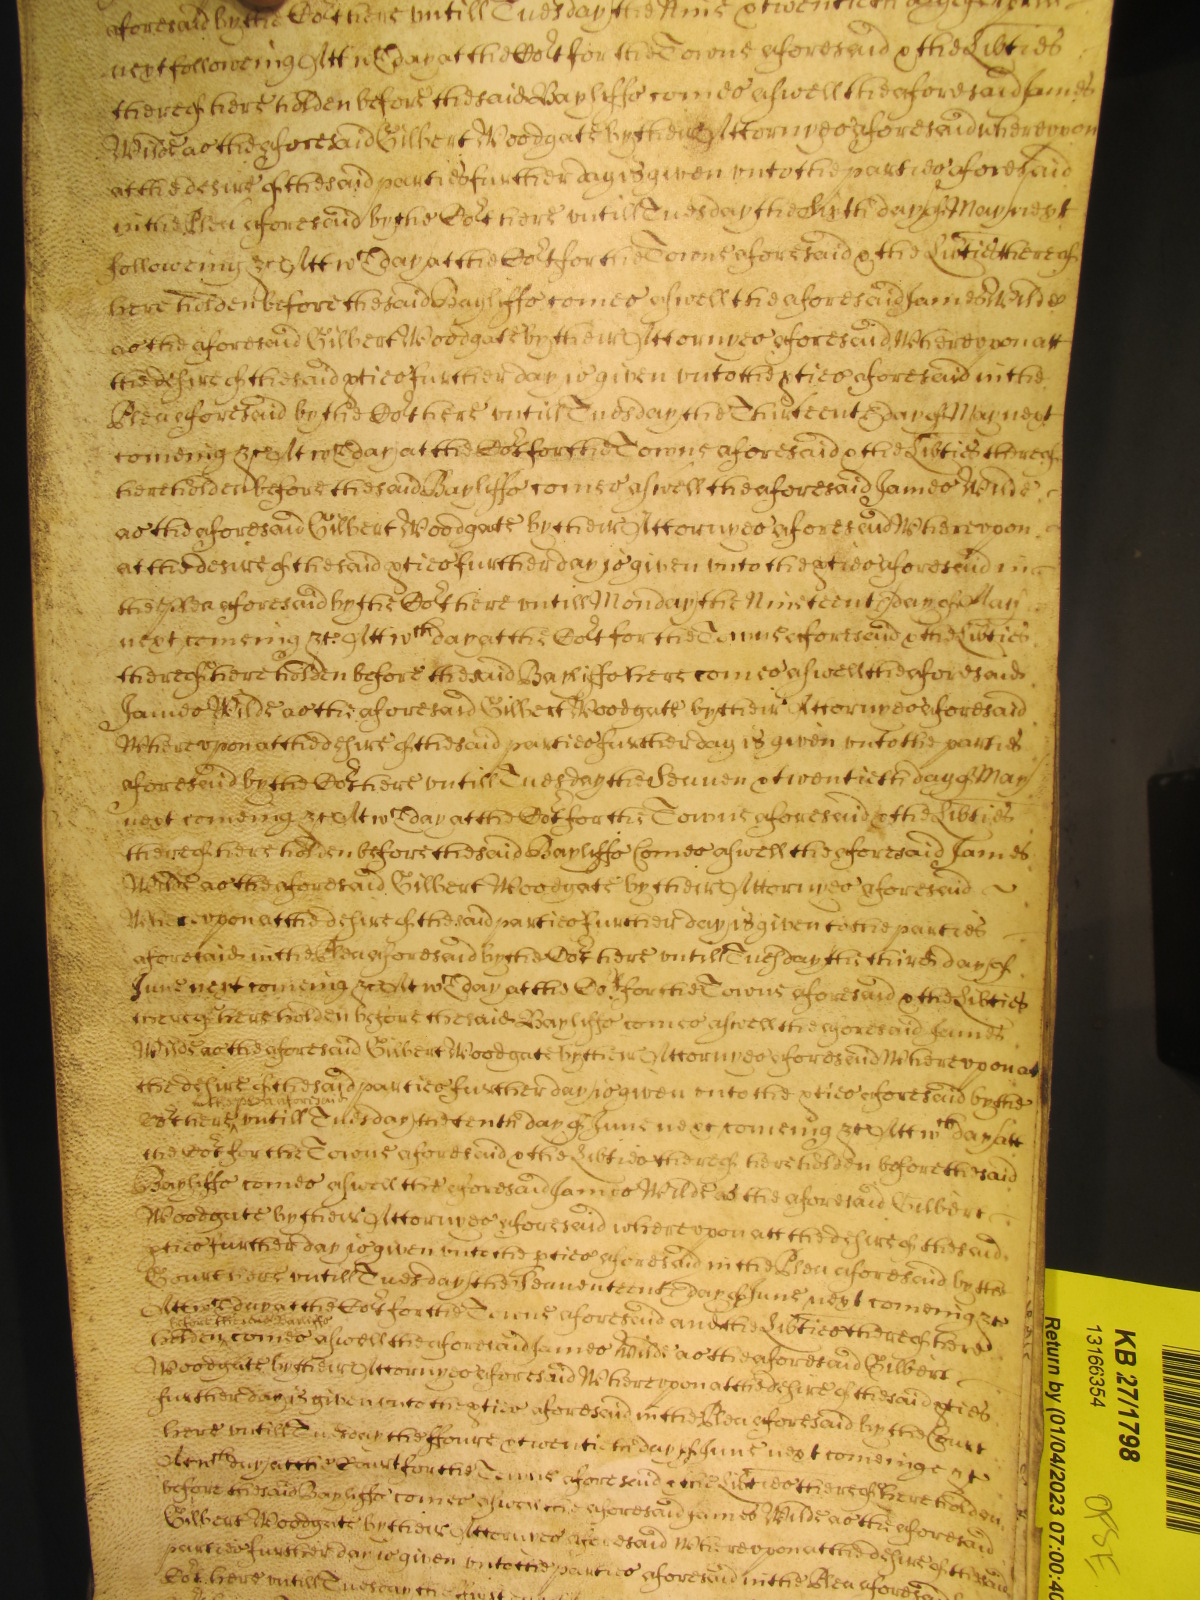 aforesaid by the Cort here untill Tuesday the Nine & twentieth day of
next following Att wch day at the Cort for the Towne aforesaid & the Libties
thereof here holden before the said Bayliffs comes aswell the aforesaid James
Wilde as the aforesaid Gilbert Woodgate by their Attornyes aforesaid whereupon
at the desire of the said parties further day is given unto the parties aforesaid
in the Plea aforesaid by the Cort here untill Tuesday the Sixth day of May next
following &c Att wch day at the Cort for the Towne aforesaid & the Libties thereof
here holden before the said Bayliffs comes aswell the aforesaid James Wilde
as the aforesaid Gilbert Woodgate by their Attornyes aforesaid Whereupon att
the desire of the said pties further day is given unto the pties aforesaid in the
Plea aforesaid by the Cort here untill Tuesday the Thirteenth day of May next
comeing &c At wch day at the Cort for the Towne aforesaid & the Libties thereof
here holden before the said Bayliffs comes aswell the aforesaid James Wilde
as the aforesaid Gilbert Woodgate by their Attornyes aforesaid Whereupon
at the desire of the said pties further day is given unto the pties aforesaid in
the Plea aforesaid by the Cort here untill Monday the Nineteenth day of May
next comeing &c Att wch day at the Cort for the Towne aforesaid & the Libties
thereof here holden before the said Bayliffs here comes aswell the aforesaid
James Wilde as the aforesaid Gilbert Woodgate by their Attornyes aforesaid
Whereupon at the desire of the said parties further day is given unto the parties
aforesaid by the Cort here untill Tuesday the Seaven & twentieth day of May
next comeing &c At wch day at the Cort for the Towne aforesaid & the Libties
thereof here holden before the said Bayliffs Comes aswell the aforesaid James
Wilde as the aforesaid Gilbert Woodgate by their Attornyes aforesaid
Whereupon at the desire of the said parties further day is given to the parties
aforesaid in the Plea aforesaid by the Cort here untill Tuesday the third day of
June next comeing &c At wch day at the Cort for the Towne aforesaid & the Libties
thereof here holden before the said Bayliffs comes aswell the aforesaid James
Wilde as the aforesaid Gilbert Woodgate by their Attornyes aforesaid Whereupon at
the desire of the said parties further day is given unto the pties aforesaid by the
in the plea aforesaid
Cort here untill Tuesday the tenth day of June next comeing &c Att wch day att
the Cort for the Towne aforesaid & the Libties thereof here holden before the said
Bayliffs comes aswell the aforesaid James Wilde as the aforesaid Gilbert
Woodgate by their Attornyes aforesaid whereupon at the desire of the said
pties further day is given unto the pties aforesaid in the Plea aforesaid by the
Court here untill Tuesday the Seaventeenth day of June next comeing &c
Att wch day at the Cort for the Towne aforesaid and the Libties thereof here
before the said Bayliffs
holden comes aswell the aforesaid James Wilde as the aforesaid Gilbert
Woodgate by their Attornyes aforesaid Whereupon at the desire of the said pties
further day is given unto the pties aforesaid in the Plea aforesaid by the Court
here untill Tuesday the ffoure & twentieth day of June next comeinge &c
At wch day at the Court for the Towne aforesaid & the Libties thereof here holden
before the said Bayliffs comes aswell the aforesaid James Wilde as the aforesaid
Gilbert Woodgate by their Attornyes aforesaid Whereupon at the desire of the said
parties further day is given unto the parties aforesaid in the Plea aforesaid
Cort here untill Tuesday the first
KB 27/1798
13166354
Return by (01/04/2023 07:00:40